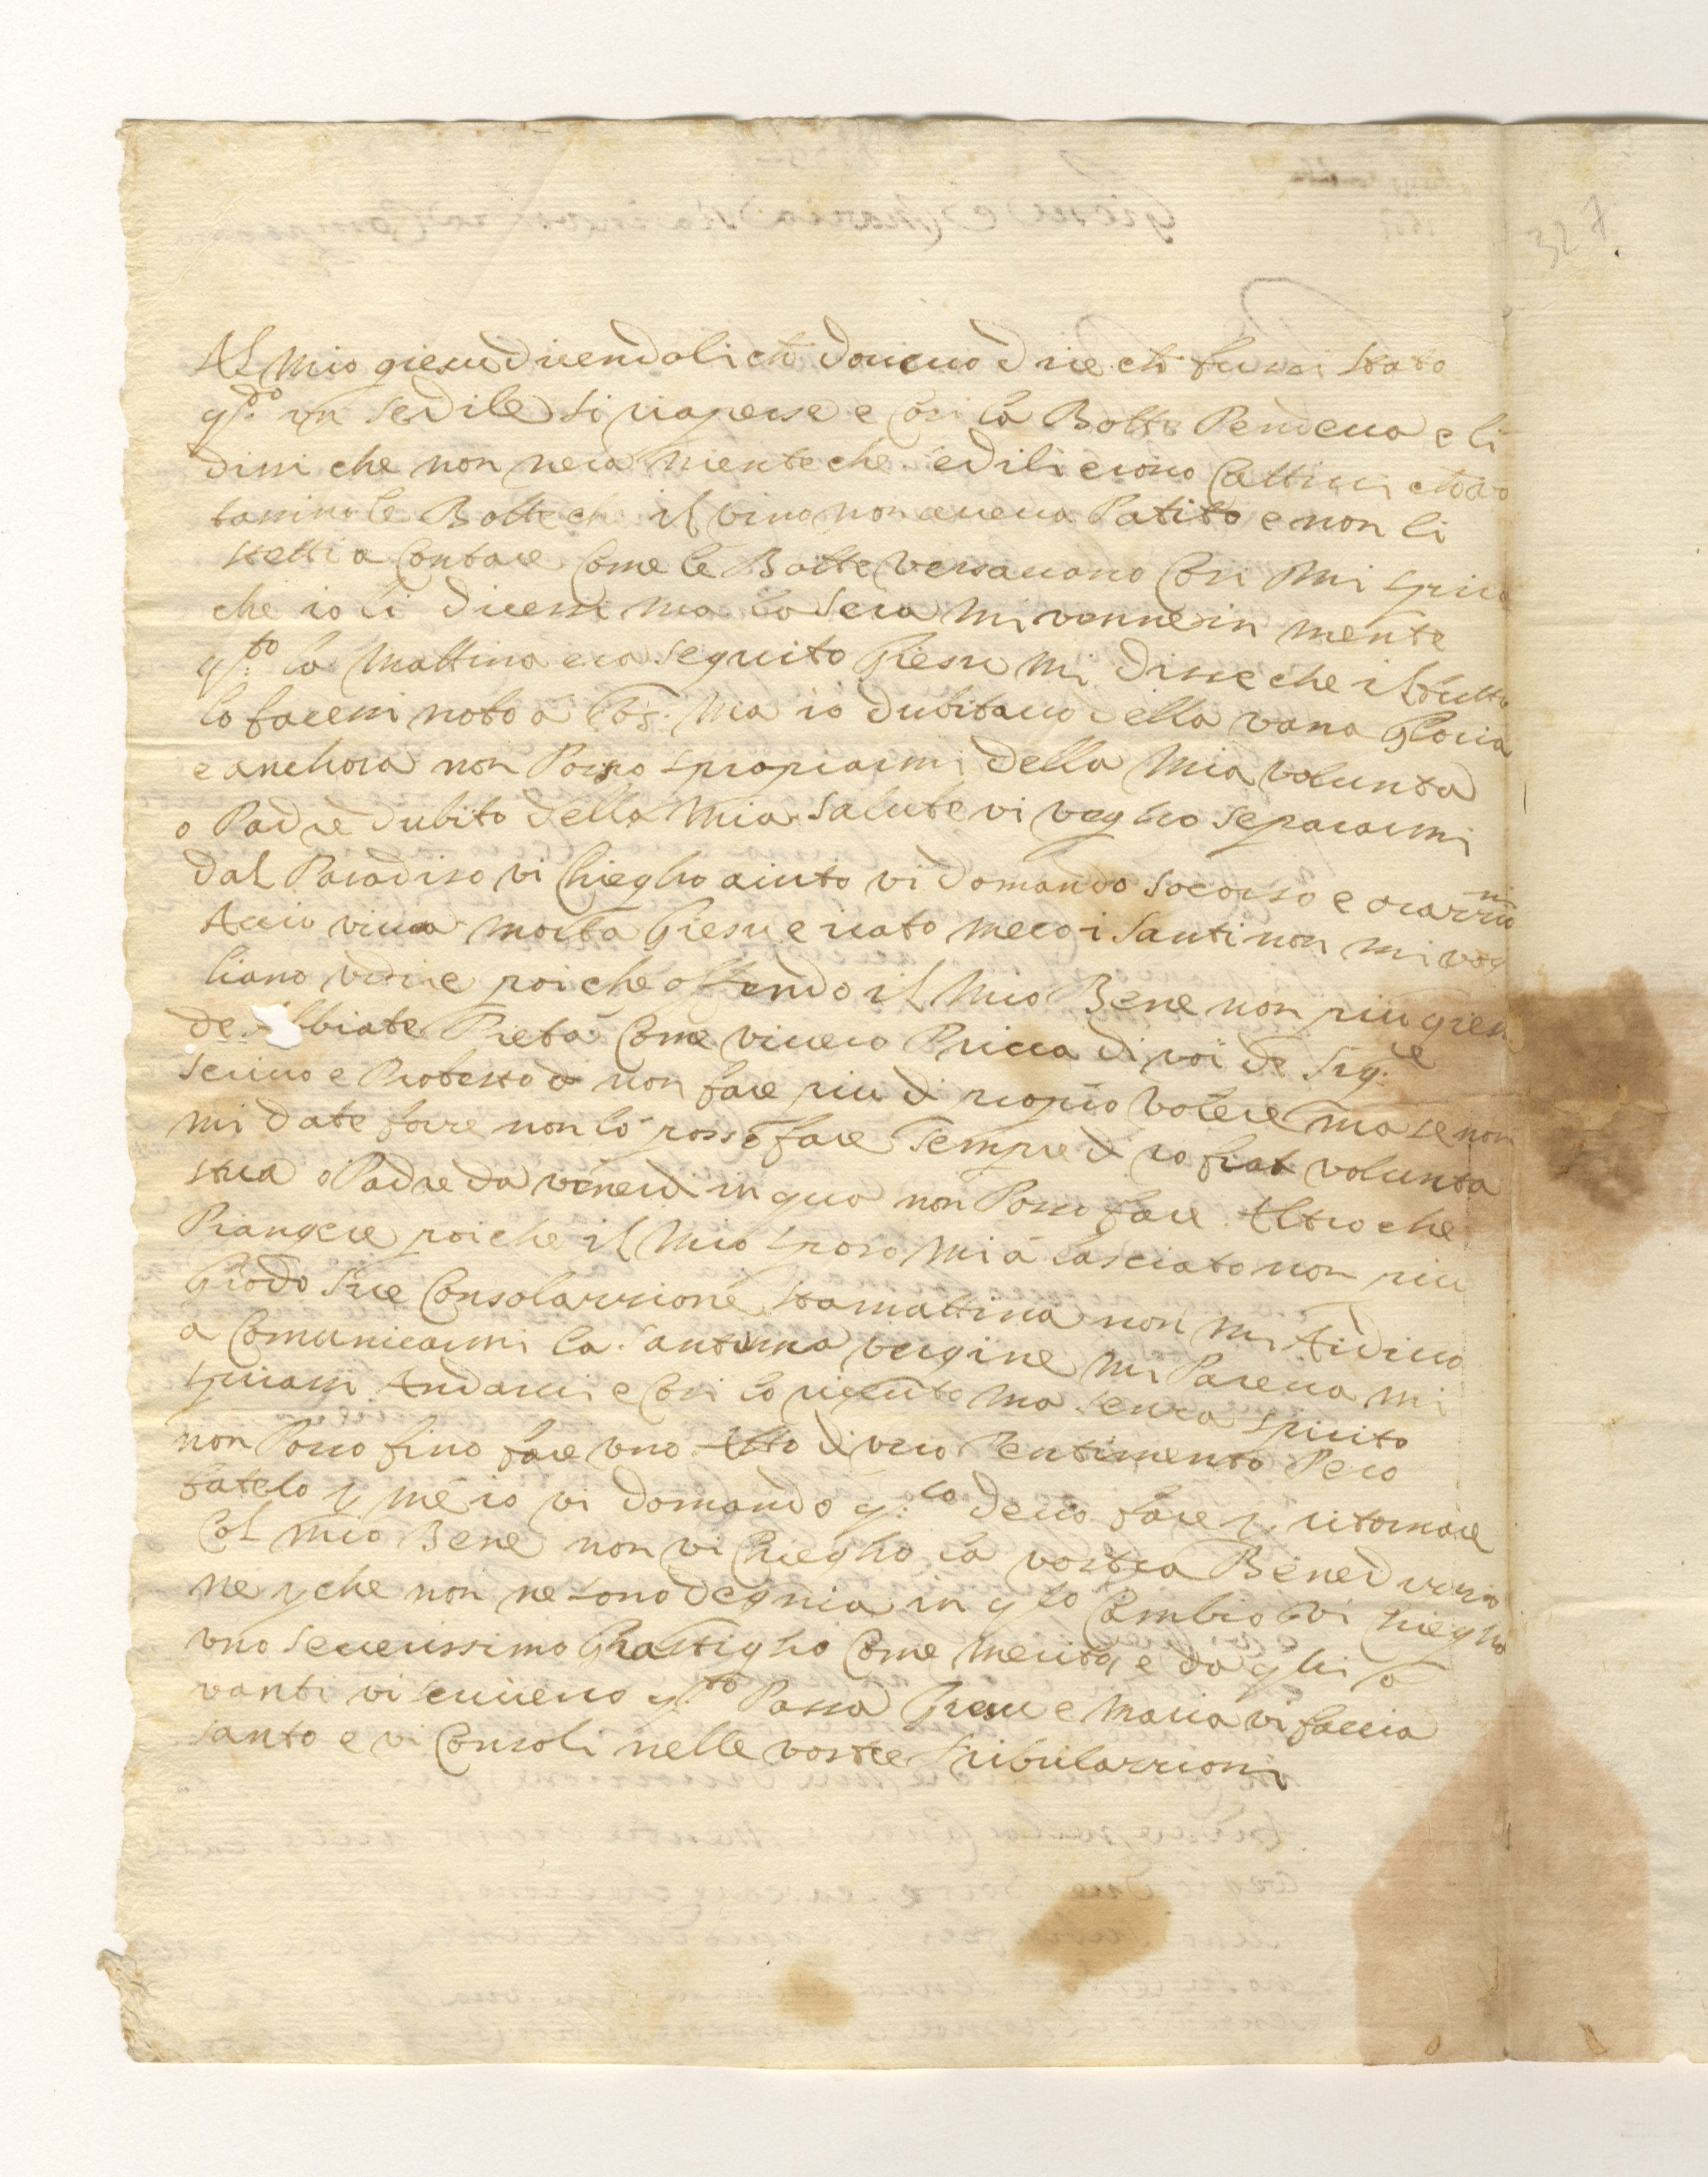 327.
Al mio giesu dicendoli ch doueuo dire ch fussi stato
q.do un sedile si riaperse e cosi la Botte Pendeua e li
dissi che non nera niente che sedili erono Cattiui
le Botte ch il vino non aueua Patito e non li
stetti a Contare Come le Botte Versauano Cosi Mi spira
che io li dicessi ma la sera mi venne in mente
q.to la Mattina era seguito Giesu mi disse che il tutto
lo facessi noto a ma io dubitauo della vana Gloria
e anchora non Posso spropiarmi della Mia Volunta
o Padre dubito della Mia Salute vi voglio separarmi
dal Paradiso vi Chieglio aiuto vi domando Socorso e
Accio viua morta Giesu e irato meco i Santi non mi vog
liano vdire poiche offendo il Mio Bene non piu gien
de Abbiate Pieta Come viuero Priua di voi
Scriuo e Protesto di non fare piu di propio Volere ma se non
mi date fare non lo posso fare Sempre di co fiat volunta
stua o Padre da venerdi in qua non Posso fare Altro che
Piangere poiche il Mio sposo mi a lasciato non piu
Ghodo Sue Consolarzione stamattina non mi Ardiuo
a Comunicarmi la Santissima vergine mi Pareua mi
spirassi Andarui e Cosi lo riceuto ma senza spirito
non Posso fino fare vno Atto di vero Pentimento Pero
fatelo p me io vi domando q:lo deuo fare p ritornare
Col mio Bene non vi Chieglio la vostra Benedizzio
ne p che non ne sono degnia in q.to Cambio vi Chieglio
vno seuerissimo Ghastiglio Come Merita e da qui a
vanti vi scriuero q.to Passa Giesu e Maria vi faccia
santo e vi Consoli nelle vostre Tribularzioni